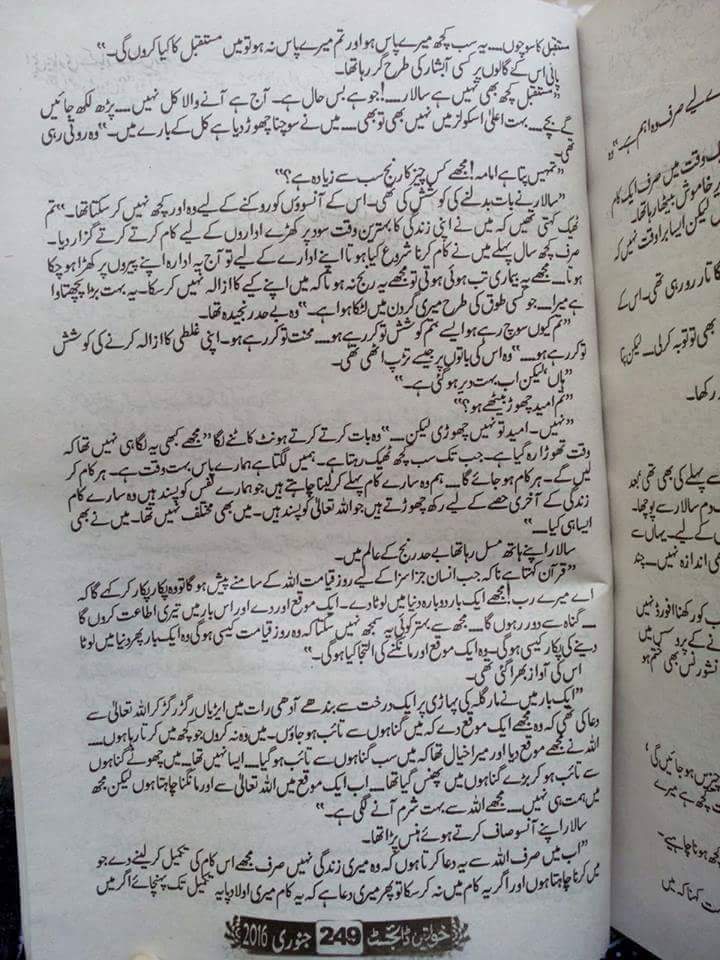 مستقبل کا سوچوں.... یہ سب کچھ میرے پاس ہو اور تم میرے پاس نہ ہو تو میں مستقبل کا کیا کروں گی۔"
پانی اس کے گالوں پر کسی آبشار کی طرح گر رہا تھا۔
"مستقبل کچھ بھی نہیں ہے سالار.... ! جو ہے بس حال ہے۔ آج ہے آنے والا کل نہیں.... پڑھ لکھ جائیں
گے بچے.... بہت اعلیٰ اسکولز میں نہیں بھی تو بھی.... میں نے سوچنا چھوڑ دیا ہے کل کے بارے میں۔" وہ روتی رہی
تھی۔
"تمہیں پتا ہے امامہ! مجھے کس چیز کا رنج سب سے زیادہ ہے؟"
"سالار نے بات بدلنے کی کوشش کی تھی۔ اس کے آنسوؤں کو روکنے کے لیے وہ اور کچھ نہیں کر سکتا تھا۔ "تم
ٹھیک کہتی تھیں کہ میں نے اپنی زندگی کا بہترین وقت سود پر کھڑے اداروں کے لیے کام کرتے کرتے گزار دیا۔
صرف کچھ سال پہلے میں نے کام کرنا شروع کیا ہوتا اپنے ادارے کے لیے تو آج یہ ادارہ اپنے پیروں پر کھڑا ہو چکا
ہوتا.... مجھے یہ بیماری تب ہوئی ہوتی تو مجھے یہ رنج نہ ہوتا کہ میں اپنے کیے کا ازالہ نہیں کر سکا۔ یہ بہت بڑا پچھتاوا
ہے میرا.... جو کسی طوق کی طرح میری گردن میں لٹکا ہوا ہے۔" وہ بے حد رنجیدہ تھا۔
"تم کیوں سوچ رہے ہو ایسے تم کوشش تو کر رہے ہو.... محنت تو کر رہے ہو۔ اپنی غلطی کا ازالہ کرنے کی کوشش
تو کر رہے ہو...." وہ اس کی باتوں پر جیسے تڑپ اٹھی تھی۔
"ہاں' لیکن اب بہت دیر ہو گئی ہے۔"
"تم امید چھوڑ بیٹھے ہو؟"
"نہیں۔ امید تو نہیں چھوڑی لیکن...." وہ بات کرتے کرتے ہونٹ کاٹنے لگا "مجھے کبھی یہ لگا ہی نہیں تھا کہ
وقت تھوڑا رہ گیا ہے۔ جب تک سب کچھ ٹھیک رہتا ہے۔ ہمیں لگتا ہے ہمارے پاس بہت وقت ہے۔ ہر کام کر
لیں گے۔ ہر کام ہو جائے گا.... ہم وہ سارے کام پہلے کر لینا چاہتے ہیں جو ہمارے نفس کو پسند ہیں وہ سارے کام
زندگی کے آخری حصے کے لیے رکھ چھوڑتے ہیں جو اللہ تعالیٰ کو پسند ہیں۔ میں بھی مختلف نہیں تھا۔ میں نے بھی
ایسا ہی کیا...."
سالار اپنے ہاتھ مسل رہا تھا بے حد رنج کے عالم میں۔
"قرآن کہتا ہے ناکہ جب انسان جزا سزا کے لیے روز قیامت اللہ کے سامنے پیش ہو گا تو وہ پکار پکار کر کہے گا کہ
اے میرے رب! مجھے ایک بار دوبارہ دنیا میں لوٹا دے۔ ایک موقع اور دے اور اس بار میں تیری اطاعت کروں گا
.... گناہ سے دور رہوں گا.... مجھ سے بہتر کوئی یہ سمجھ نہیں سکتا کہ وہ روز قیامت کیسی ہوگی وہ ایک بار پھر دنیا میں لوٹا
دینے کی پکار کیسی ہوگی۔ وہ ایک موقع اور مانگنے کی التجا کیا ہوگی۔"
اس کی آواز بھرا گئی تھی۔
"ایک بار میں نے مارگلہ کی پہاڑی پر ایک درخت سے بندھے آدھی رات میں ایڑیاں رگڑ رگڑ کر اللہ تعالیٰ سے
دعا کی تھی کہ وہ مجھے ایک موقع دے کہ میں گناہوں سے تائب ہو جاؤں۔ میں وہ نہ کروں جو کچھ میں کرتا رہا ہوں....
اللہ نے مجھے موقع دیا اور میرا خیال تھا کہ میں سب گناہوں سے تائب ہو گیا.... ایسا نہیں تھا.... میں چھوٹے گناہوں
سے تائب ہو کر بڑے گناہوں میں پھنس گیا تھا.... اب ایک موقع میں اللہ تعالیٰ سے اور مانگنا چاہتا ہوں لیکن مجھ
میں ہمت ہی نہیں.... مجھے اللہ سے بہت شرم آنے لگی ہے۔"
سالار اپنے آنسو صاف کرتے ہوئے ہنس پڑا تھا۔
"اب میں صرف اللہ سے یہ دعا کرتا ہوں کہ وہ میری زندگی نہیں صرف مجھے اس کام کی تکمیل کر لینے دے جو
میں کرنا چاہتا ہوں اور اگر یہ کام میں نہ کر سکا تو پھر میری دعا ہے کہ یہ کام میری اولاد پایہ تکمیل تک پہنچائے اگر میں
خواتین ڈائجسٹ 249 جنوری 2016
ے لیے صرف وہ اہم ہے۔" وہ
وقت میں صرف ایک کام
خاموش بیٹھا رہا تھا۔
لیکن ایسا برا وقت نہیں کہ
تار رو رہی تھی۔ اس کے
بھی تو توبہ کر لی.... لیکن
رکھا۔
سے پہلے کی بھی تھی بعد
دم سالار سے پوچھا۔
کے لیے۔ یہاں سے
اندازہ نہیں.... چند
کو رکھنا افورڈ نہیں
نے کے پروسس میں
انشورنس بھی ختم ہو
چیزیں ہو جائیں گی'
کچھ ہے میرے
ہونا چاہیے۔
کہنا کہ میں